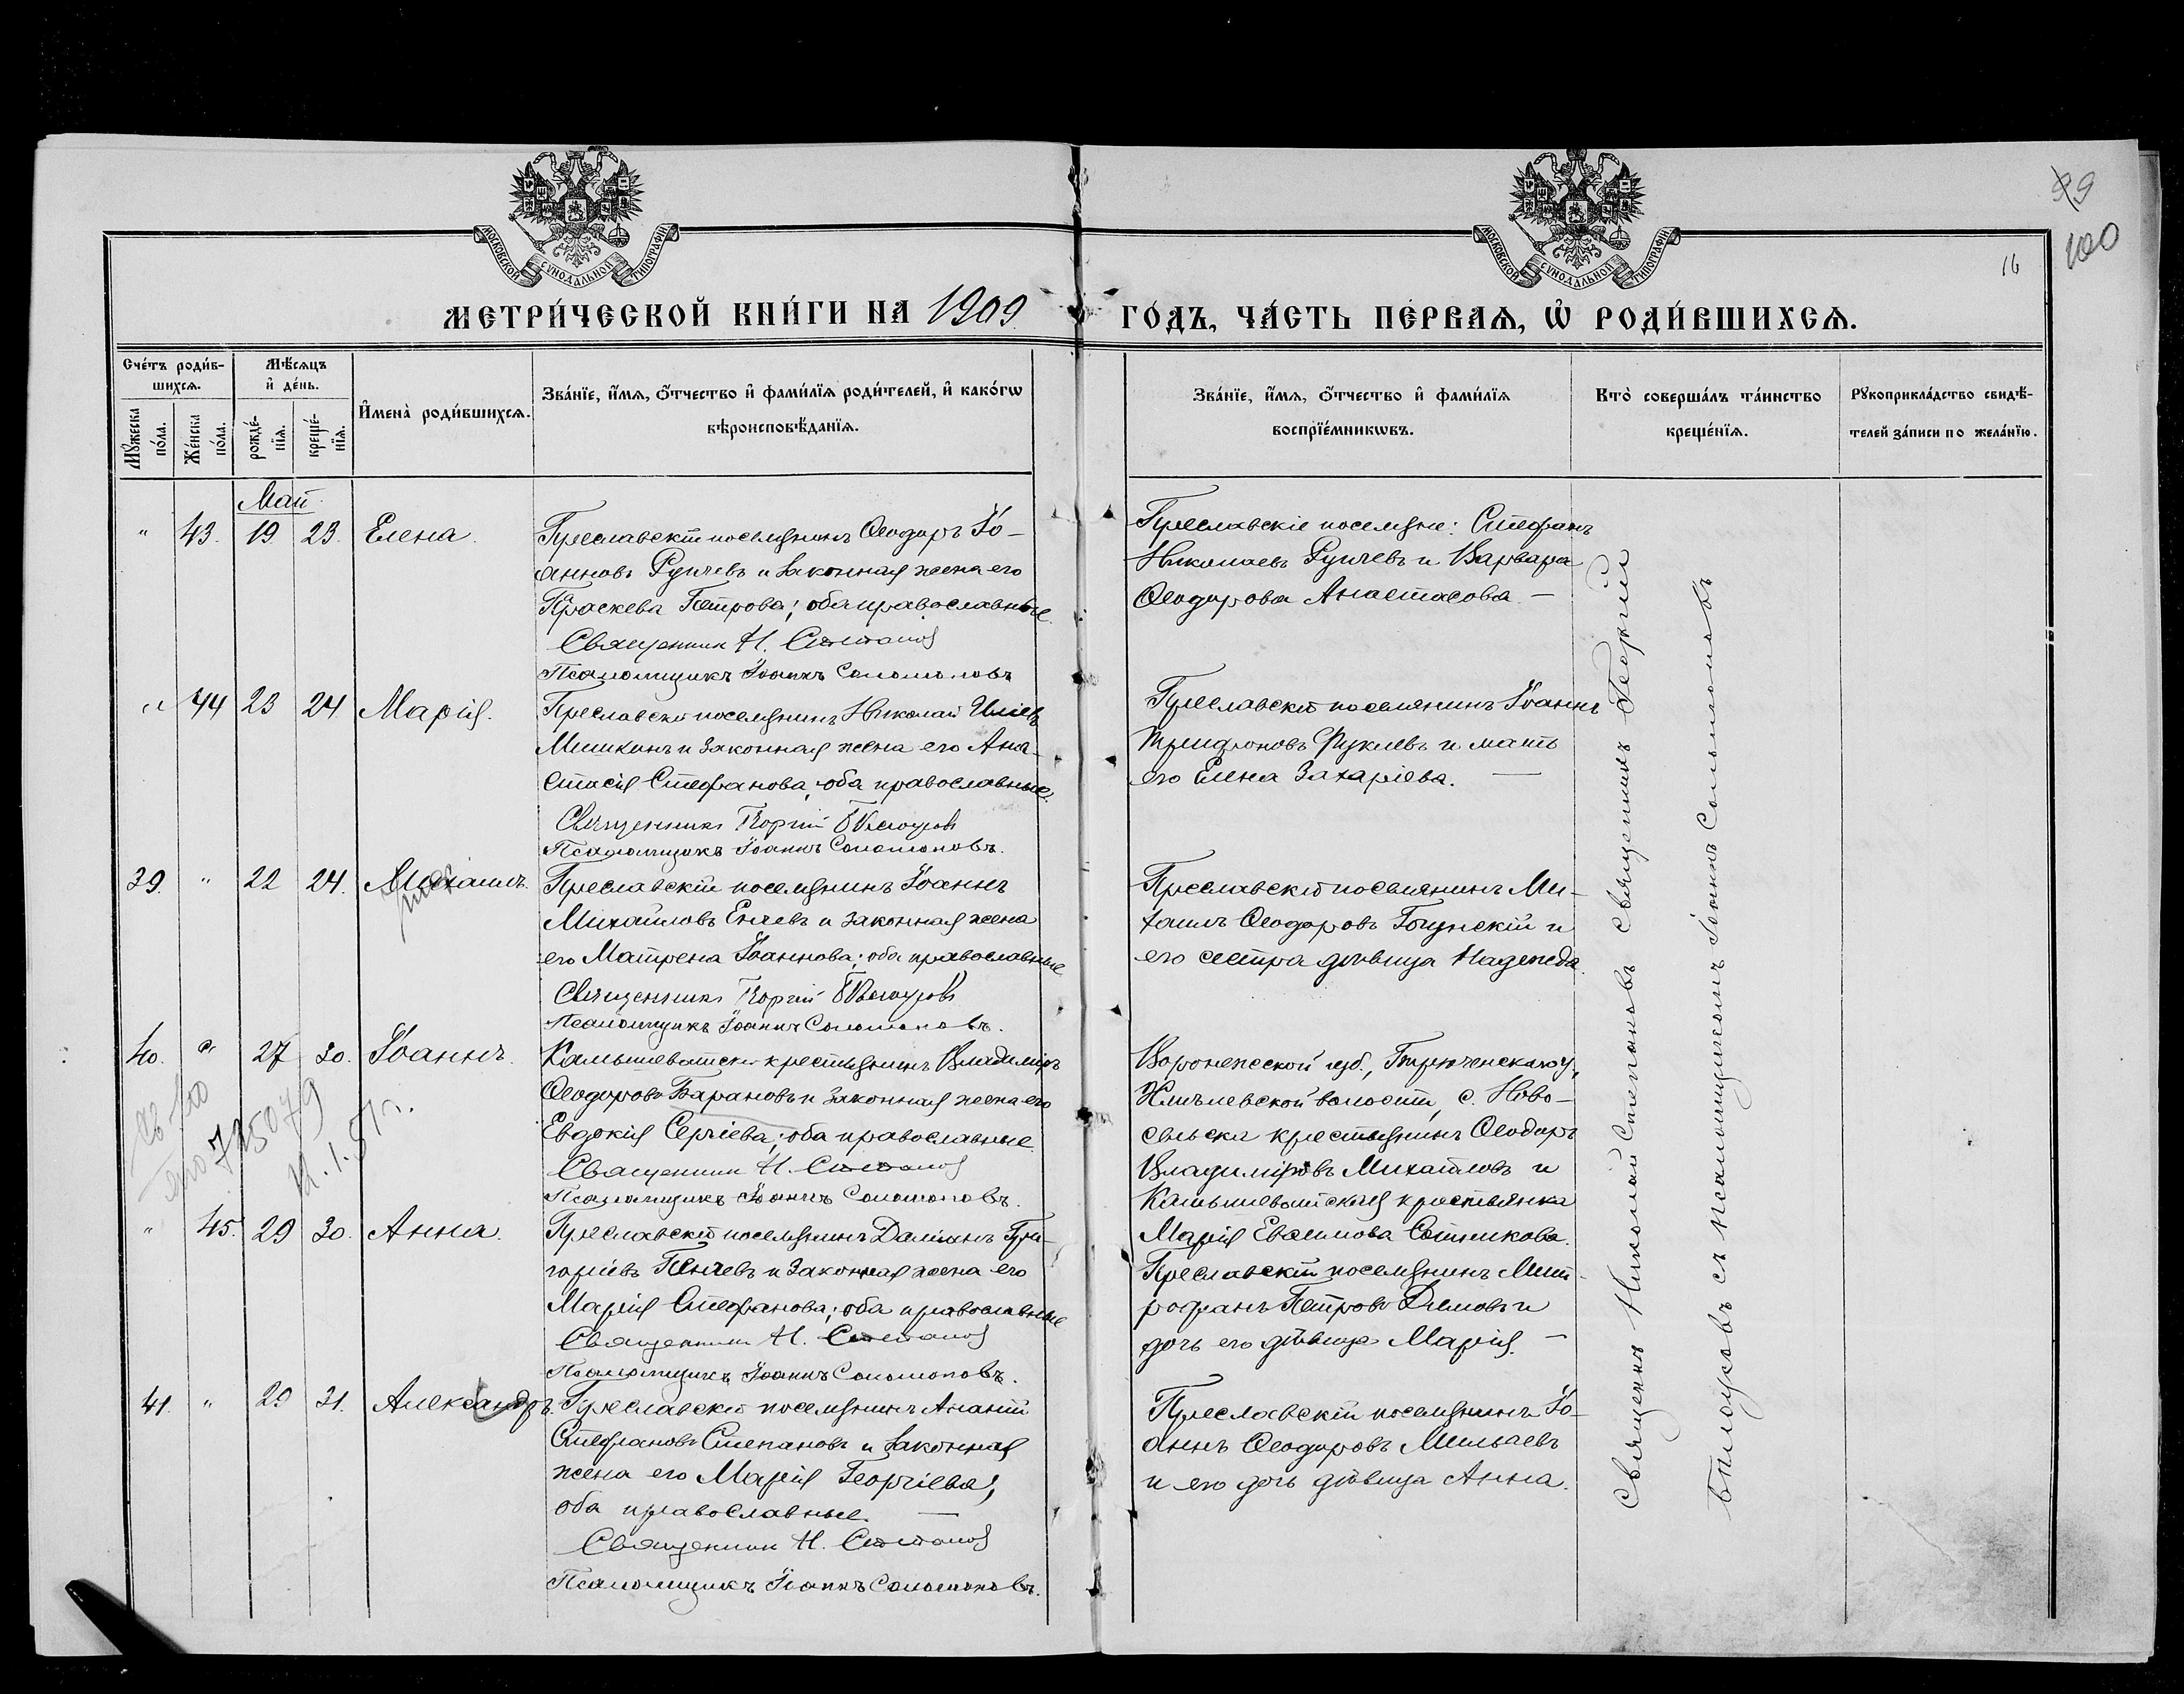 МОСКОВСКОЙ СѴНОДАЛЬНОЙ ТИПОГРАФІИ
МОСКОВСКОЙ СѴНОДАЛЬНОЙ ТИПОГРАФІИ
99
100
16
МЕТРИ́ЧЕСКОЙ КНИ́ГИ НА 1909
ГО́ДЪ, ЧА́СТЬ ПЕ́РВАЯ, Ѡ҆ РОДИ́ВШИХСЯ.
Сче́тъ роди́в-
шихся.
Мꙋ́жеска по́ла.
Же́нска по́ла.
Мѣ́сяцъ
и҆ де́нь.
рожде́-
нїя.
креще́-
нїя.
И҆мена̀ роди́вшихся.
Зва́нїе, и҆́мя, ѻ҆́тчество и҆ фами́лїя роди́телей, и҆ како́гѡ
вѣроисповѣ́данїя.
Зва́нїе, и҆́мя, ѻ҆́тчество и҆ фами́лїя
воспрїе́мникѡвъ.
Кто̀ соверша́лъ та́инство
креще́нїя.
Рꙋкоприкла́дство свидѣ́-
телей за́писи по жела́нїю.
Май
" 43. 19 23. Елена.
Преславскій поселянинъ Ѳеодоръ Іо-
анновъ Рупчевъ и законная жена его
Параскева Петрова; оба православные.
Священник Н. Степанов
Псаломщикъ Іоаннъ Соломоновъ
Преславскіе поселяне: Стефанъ
Николаевъ Рупчевъ и Варвара
Ѳеодорова Анастасова. —
" 44 23 24. Марія.
Преславскій поселянинъ Николай Иліевъ
Мишкинъ и законная жена его Ана-
стасія Стефанова; оба православные.
Священникъ Георгій Бѣлоусовъ
Псаломщикъ Іоаннъ Соломоновъ.
Преславскій поселянинъ Іоаннъ
Трифоновъ Фуклевъ и мать
его Елена Захаріева. —
39. " 22 24. Михаилъ.
Преславскій поселянинъ Іоаннъ
Михайловъ Енчевъ и законная жена
его Матрена Іоаннова; оба православные
Священникъ Георгій Бѣлоусовъ
Псаломщикъ Іоаннъ Соломоновъ.
Преславскій поселянинъ Ми-
хаилъ Ѳеодоровъ Гоцунскій и
его сестра дѣвица Надежда.
40. " 27 30. Іоаннъ.
Камышеватскій крестьянинъ Владиміръ
Ѳеодоровъ Барановъ и законная жена его
Евдокія Сергіева; оба православные
Священник Н. Степанов
Псаломщикъ Іоаннъ Соломоновъ.
725079
Воронежской губ., Бирюченскаго у.,
волости, с. Ново-
сельска крестьянинъ Ѳеодоръ
Владиміровъ Михайловъ и
Камышеватская крестьянка
Марія Евѳимова Сотникова.
" 45. 29 30. Анна.
Преславскій поселянинъ Даміанъ Гри-
горіевъ Пенчевъ и законная жена его
Марія Стефанова; оба православные
Священник Н. Степанов
Псаломщикъ Іоаннъ Соломоновъ.
Преславскій поселянинъ Мит-
рофанъ Петровъ Димовъ и
дочь его дѣвица Марія. —
41. " 29 31. Александръ.
Преславскій поселянинъ Ананій
Стефановъ Степановъ и законная
жена его Марія Георгіева;
оба православные. —
Священник Н. Степанов
Псаломщикъ Іоаннъ Соломоновъ.
Преславскій поселянинъ Іо-
аннъ Ѳеодоровъ Мильчевъ
и его дочь дѣвица Анна.
Священникъ Николай Степановъ священникъ Георгій
Бѣлоусовъ съ псаломщикомъ Іоанномъ Соломоновымъ